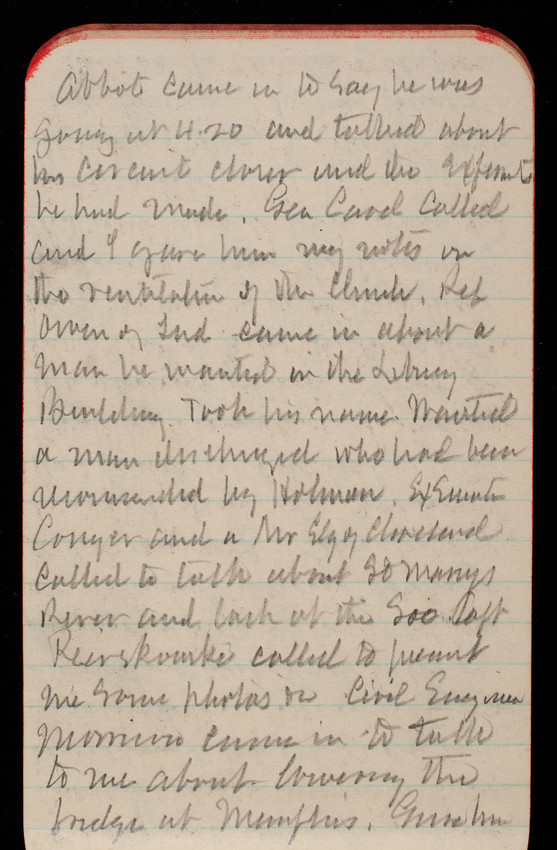 Abbot came in to say he was
going at 4.20 and talked about
his circuit closer and the experiments
he had made. Gen Casel called
and I gave him my notes on
the ventilation of the Church. Rep
Owen of Ind came in about a
man he wanted in the Library
Building. Took his name. Wanted
a man discharged who had been
recommended by Holman. Ex Senator
Conger and a Mr Ely of Cleveland
called to talk about St Marys
River and lock at the Soo. Capt
called to present
me some photos &c Civil Engineer
Morrison came in to talk
to me about lowering the
bridge at Memphis. Gave him